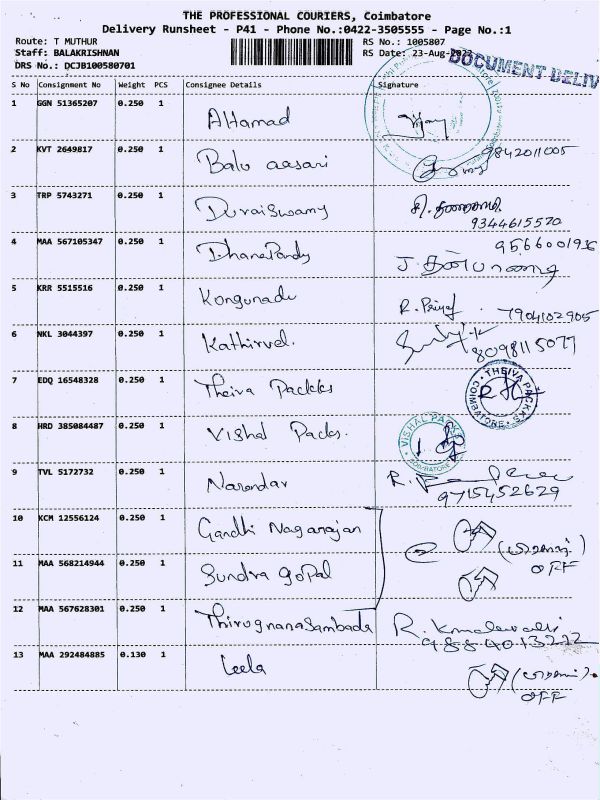 THE PROFESSIONAL COURIERS, Coimbatore
Delivery Runsheet - P41 - Phone No.:0422-3505555 - Page No.:1
Route: T MUTHUR RS No.: 1005807
Staff: BALAKRISHNAN RS Date: 23-Aug-2022
DRS No.: DCJB100580701
DOCUMENT DELIV
S No Consignment No Weight PCS Consignee Details Signature
1 GGN 51365207 0.250 1 AHamad
2 KVT 2649817 0.250 1 Balu aasari 9842011005
3 TRP 5743271 0.250 1 Duraiswamy
9344615520
4 MAA 567105347 0.250 1 DhanaPandy 9566001936
5 KRR 5515516 0.250 1 Kongunadu R. Priya 7904102905
6 NKL 3044397 0.250 1 Kathirvel.
8098115077
7 EDQ 16548328 0.250 1 Theiva Packks THEIVA PACKKS COIMBATORE
8 HRD 385084487 0.250 1 Vishal Packs. VISHAL PACKS COIMBATORE
9 TVL 5172732 0.250 1 Narendar R.
9715452629
10 KCM 12556124 0.250 1 Gandhi Nagarajan
OFF
11 MAA 568214944 0.250 1 Sundra gopal
12 MAA 567628301 0.250 1 ThirugnanaSambada R.
9884013222
13 MAA 292484885 0.130 1 Leela
OFF